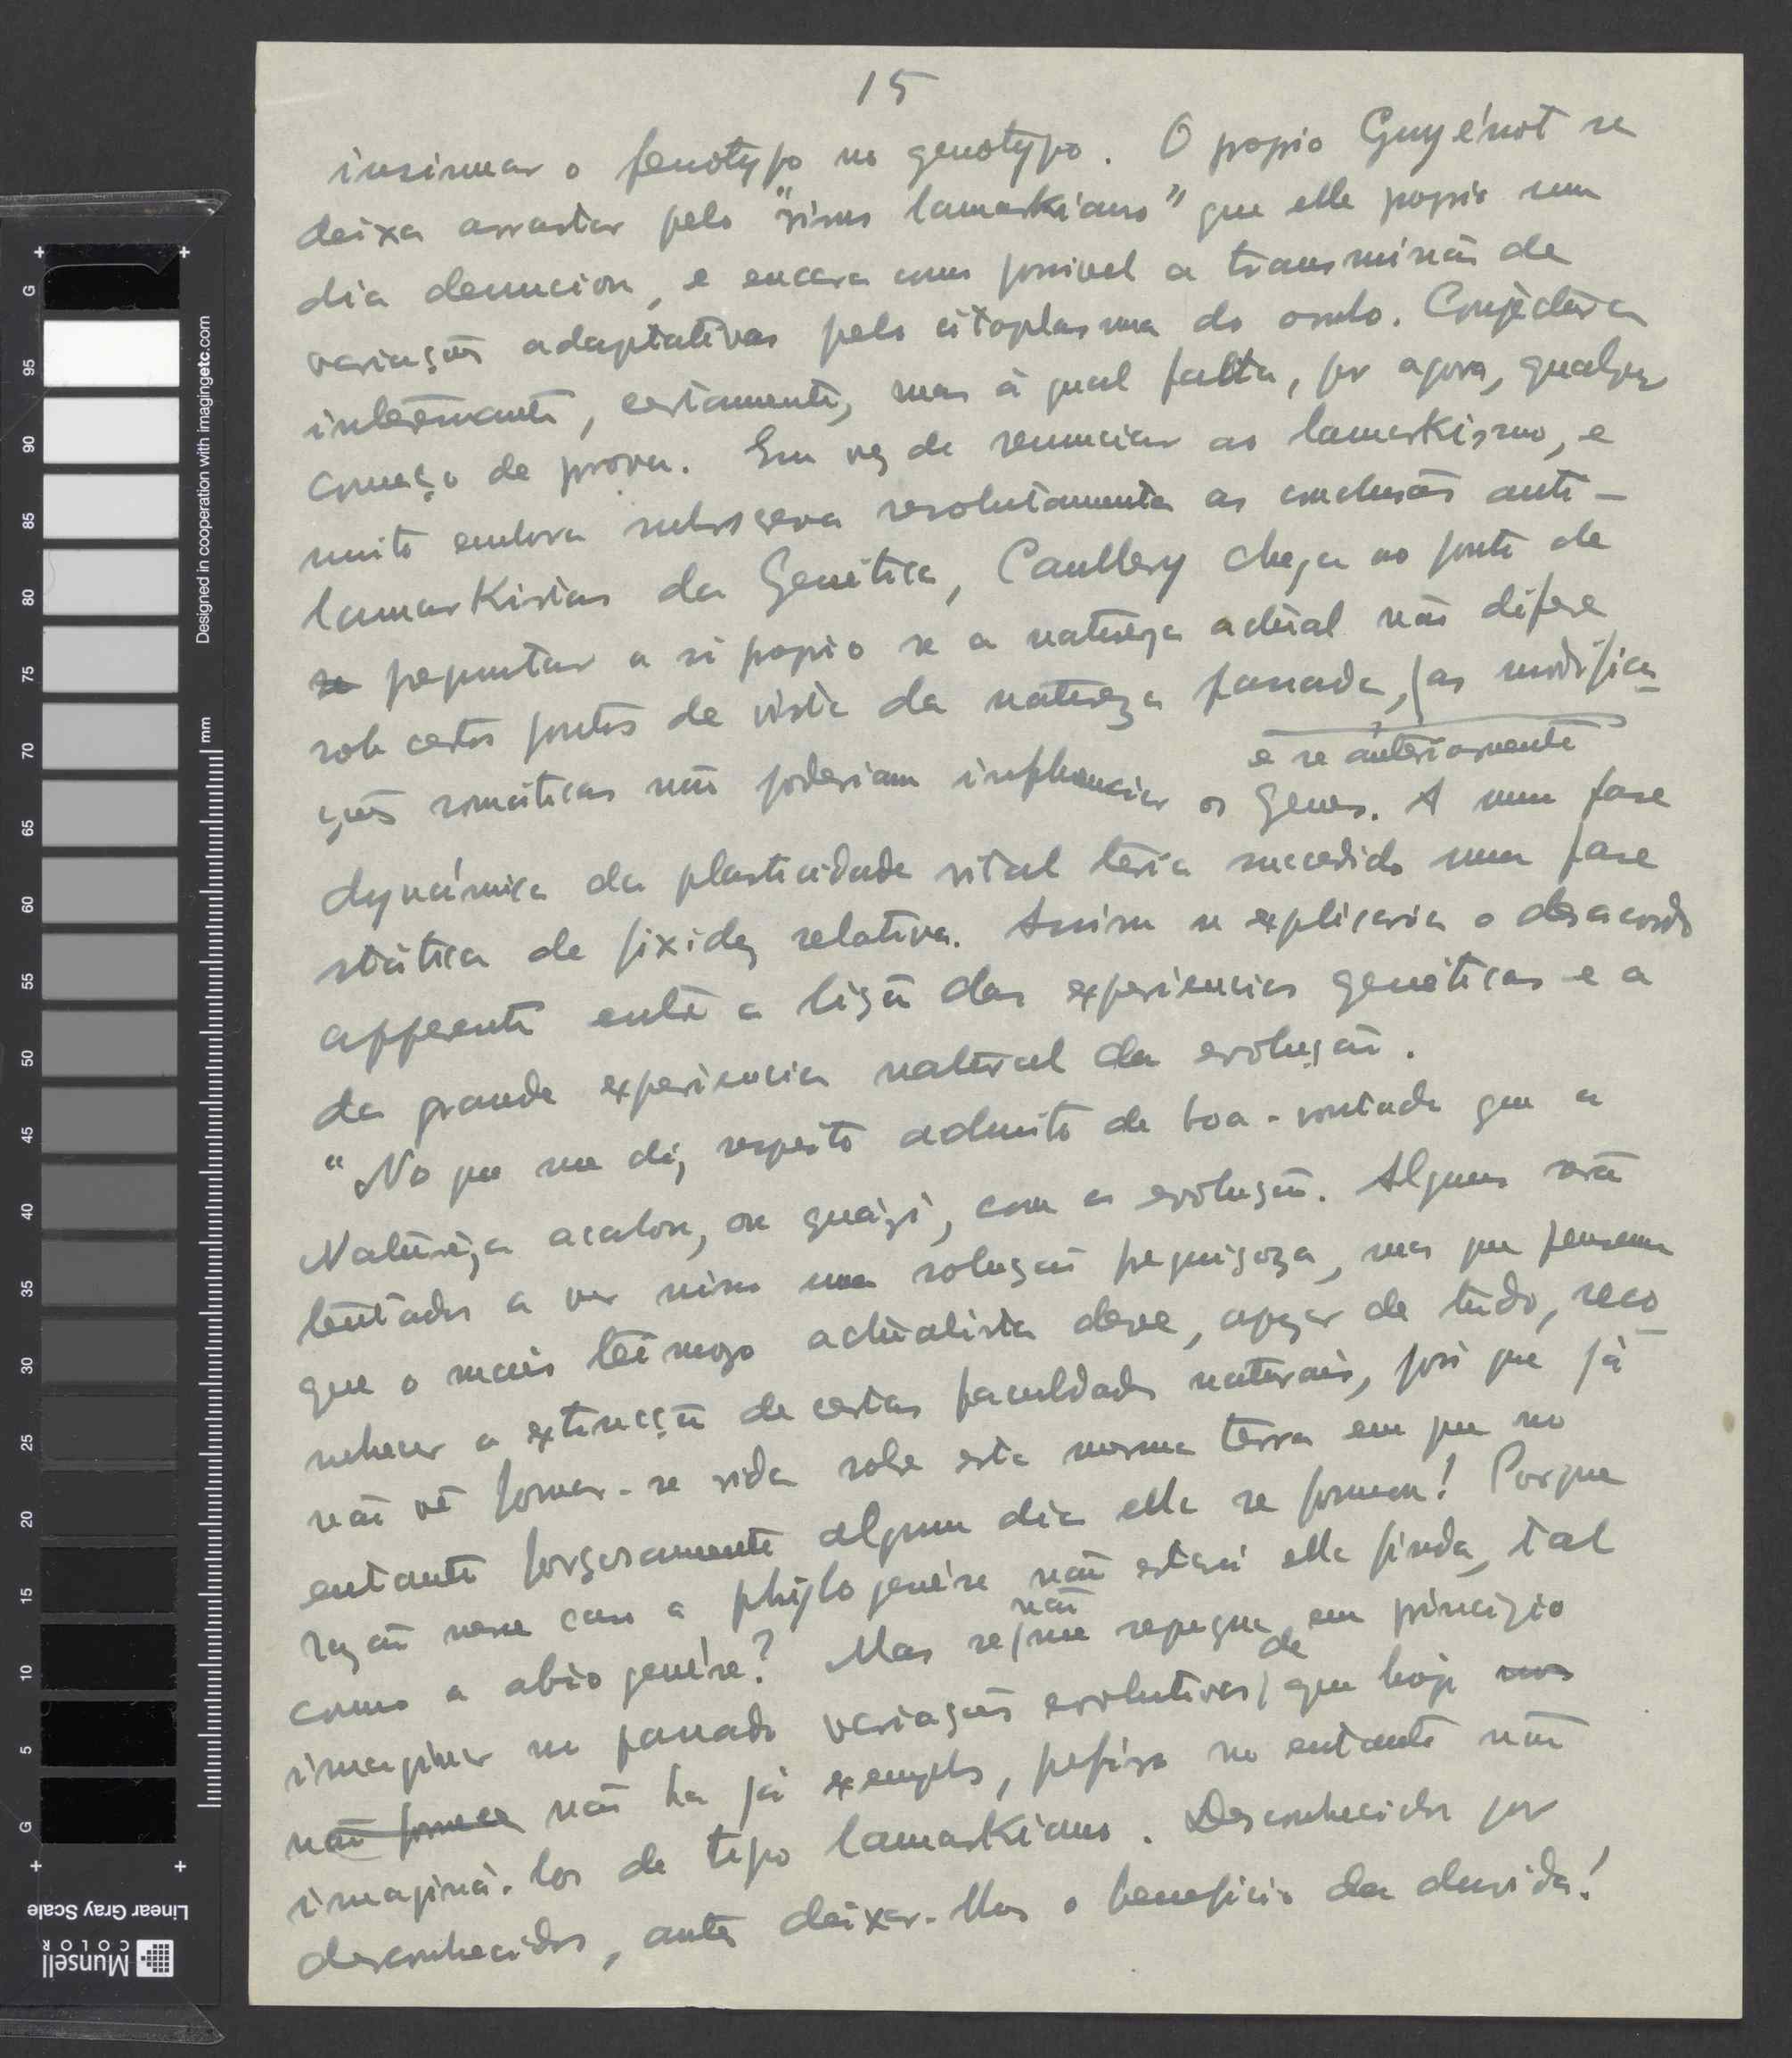 15
insinuar o fenotypo no genotypo. O propio Guyénot se
deixa arrastar pelo "nisus lamarkiano" que elle propio um
dia denunciou, e encara como possivel a transmissão de
variações adaptativas pelo citoplasma do ovulo. Conjectura
interessante, certamente, mas à qual falta, por agora, qualquer
começo de prova. Em vez de renunciar ao lamarkismo, e
muito embora subscreva resolutamente as conclusões anti-
lamarkistas da Genética, Caullery chega ao ponto de
se perguntar a si propio se a natureza actual não difere
sob certos pontos de vista da natureza passada, (as modifica
e se anteriormente
ções somáticas não poderiam influenciar os genes. A uma fase
dynámica da plasticidade vital teria succedido uma fase
stática de fixidez relativa. Assim se explicaria o desacordo
apparente entre a lição das experiencias genéticas e a
da grande experiencia natural da evolução.
"No que me diz respeito admito de boa-vontade que a
Natureza acabou, ou quázi, com a evolução. Alguns verão
tentados a ver nisso uma solução preguiçoza, mas que pensem
que o mais teimozo actualista deve, apezar de tudo, reco
nhecer a extincção de certas faculdades naturais, pois que já
não vê formar-se vida sobre esta mesma terra em que no
entanto forçosamente algum dia ella se formou! Porque
razão nesse caso a phylogenése não estará ella finda, tal
como a abiogenése? Mas se me repugna em principio
não
imaginar no passado variações evolutivas que hoje nos
de
não fornece não ha já exemplos, prefiro no entanto não
imaginá-los de tipo lamarkiano. Desconhecidos por
desconhecidos, antes deixar-lhes o beneficio da duvida!
Designed in cooperation with imagingetc.com
mm
G
95
90
85
80
75
70
65
60
55
50
45
40
35
30
25
20
15
10
5
G
Linear Gray Scale
Munsell
COLOR